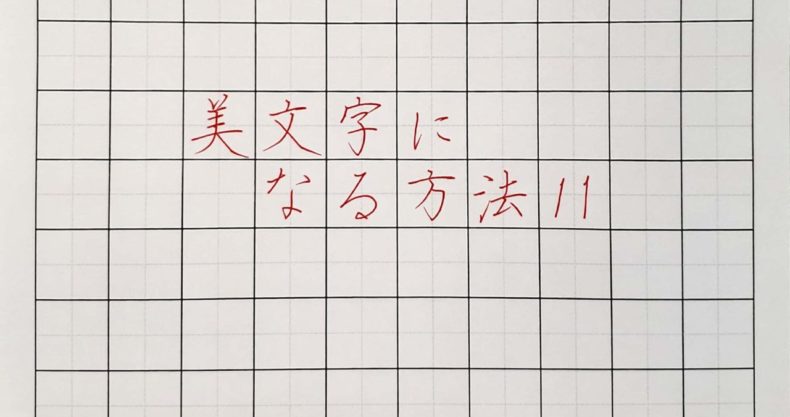 美文字に
なる方法11